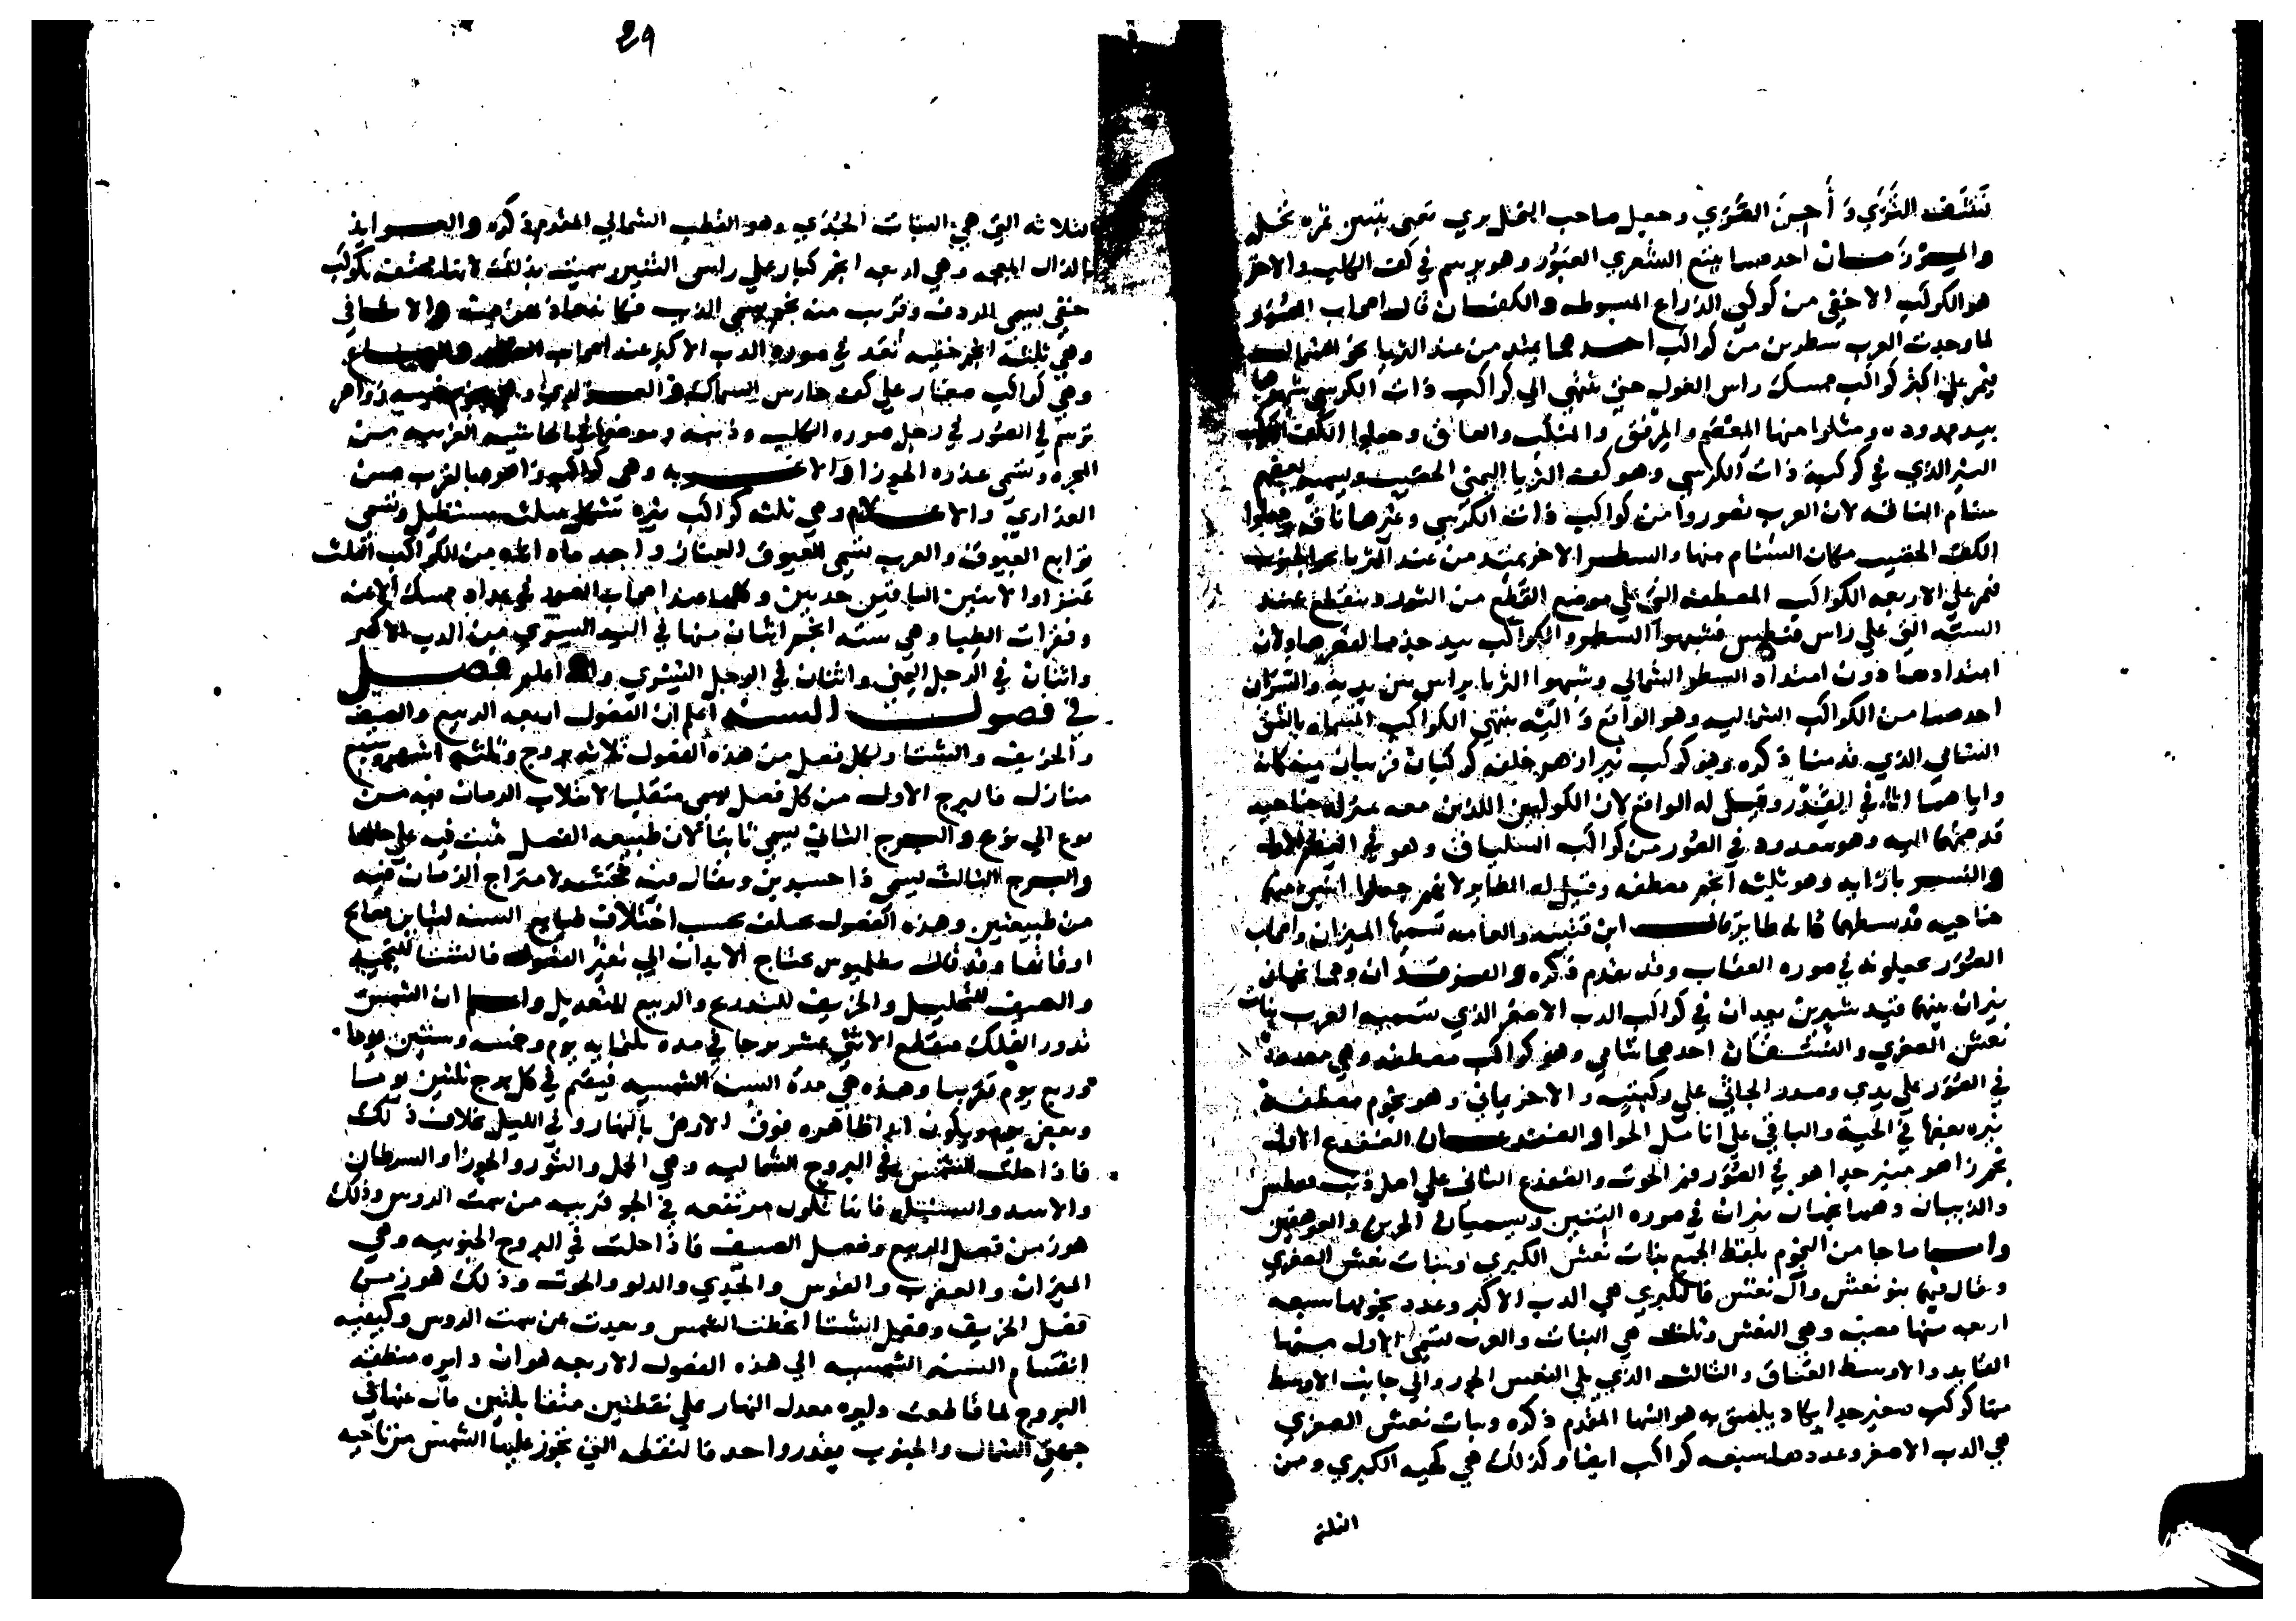 وجعل صاحب النخل يري بثمره نخله
والمرزمان احدهما يتبع الشعري العبور وهو يرسم في كف الكلب والاخر
هو الكوكب الاخفي من كوكبي الذراع المبسوطه والكفان قال اصحاب الصور
لما وجدت العرب سطرين من كواكب احدهما يمتد من عند الثريا نحو الشمال
فيمر علي اكثر كواكب ممسك راس الغول حتي ينتهي الي كواكب ذات الكرسي شبهوها
بيد ممدوده ومثلوا منها المعصم والمرفق والمنكب والعاتق وجعلوا الكف
النير الذي في كوكبة ذات الكرسي وهو كف الثريا اليمني الخضيب ويسميه بعضهم
سنام الناقه لان العرب تصوروا من كواكب ذات الكرسي وغيرها ناقه وجعلوا
الكف الخضيب مكان السنام منها والسطر الاخر يمتد من عند الثريا نحو الجنوب
فيمر علي الاربعه الكواكب المصطفه التي علي موضع القطع من الثور وينقطع عند
الستة التي علي راس قيطس فشبهوا السطر والكواكب بيد جذما لقصرها ولان
امتدادها دون امتداد السطر الشمالي وشبهوا الثريا براس بين يديه والنسران
احدهما من الكواكب الشماليه وهو الواقع واليه ينتهي الكواكب المسماه بالنسق
الشامي الذي قدمنا ذكره وهو كوكب نير ازهر خلفه كوكبان قريبان منه كان
واياهما اثافي القدر وقيل له الواقع لان الكوكبين اللذين معه بمنزلة جناحيه
قد ضمهما اليه وهو معدود في الصور من كواكب السلياق وهو في
والنسر بازايه وهو ثلثه انجم مصطفه وقيل له الطاير لانهم جعلوا اثنين منها
جناحيه قد بسطهما كانه طاير قال ابن قتيبه والعامه تسميها الميزان واصحاب
الصور يجعلونه في صوره العقاب وقد تقدم ذكره والفرقدان وهما نجمان
نيران بينهما قيد شبرين يعدان في كواكب الدب الاصغر الذي تسميه العرب بنات
نعش الصغري والنسقان احدهما شامي وهو كواكب مصطفه وهي معدوده
في الصور علي يدي وصدر الجاثي علي ركبتيه والاخر يماني وهو نجوم مصطفة
نيره بعضها في الحية والباقي علي انامل الحوا والضفدعان الضفدع الاول
نجم زاهر منير جدا هو في الصور فم الحوت والضفدع الثاني علي اصل ذنب قيطس
والذيبان وهما نجمان نيران في صوره التنين ويسميان الحرين والعوهقين
واما ما جا من النجوم بلفظ الجمع بنات نعش الكبري وبنات نعش الصغري
ويقال فيهما بنو نعش وآل نعش فالكبري هي الدب الاكبر وعدد نجومها سبعه
اربعه منها مصبه وهي النعش وثلثه هي البنات والعرب تسمي الاول منها
القايد والاوسط العناق والثالث الذي يلي النعش الجور والي جانب الاوسط
منها كوكب صغير جدا يكاد يلصق به هو السها المقدم ذكره وبنات نعش الصغري
هي الدب الاصغر وعددها سبعه كواكب ايضا وكذلك هي كهيه الكبري ومن
الثلثه
29
الثلاثه التي هي البنات الجدي وهو القطب الشمالي المقدم ذكره والعوايذ
بالذال المعجمه وهي اربعه انجم كبار علي راس التنين وسميت بذلك لانها محتفه بكوكب
خفي يسمي الردف وقريب منه نجم يسمي الذيب فكانها تعوذه منه والاثافي
وهي ثلثة انجم خفيه تعد في صوره الدب الاكبر عند اصحاب الصور والضباع
وهي كواكب صغار علي كف حارس السماك والعذاري وهي خمسه زواهر
ترسم في الصور في رجل صوره الكلب وذنبه وموضعها في الحاشيه الغربيه من
المجره وتسمي عذره الجوزا والاغربه وهي كواكب زاهره بالقرب من
العذاري والاعلام وهي ثلثه كواكب نيره تشكل مثلث مستطيل وتسمي
توابع العيوق والعرب تسمي العيوق العناز واحد ماه الله من الكواكب الثلث
عنزا والاثنين الباقيين جديين وكلها عند اصحاب الصور في عداد ممسك الاعنه
وقفزات الظبا وهي سته انجم اثنان منها في اليد اليسري من الدب الاكبر
واثنان في الرجل اليمني واثنان في الرجل اليسري والله اعلم فصل
في فصول السنه اعلم ان الفصول اربعه الربيع والصيف
والخريف والشتا ولكل فصل من هذه الفصول ثلاثه بروج وثلثه اشهر وسبع
منازل فالبرج الاول من كل فصل يسمي منقلبا لانقلاب الزمان فيه من
نوع الي نوع والبرج الثاني يسمي ثابتا لان طبيعه الفصل تثبت فيه علي حالها
والبرج الثالث يسمي ذا جسدين ويقال فيه مجتسد لامتزاج الزمان فيه
من طبيعتين وهذه الفصول تختلف بحسب اختلاف طبايع السنه لتباين مصالح
اوقاتها وقد قال بطلميوس تحتاج الابدان الي تغير الفصول فالشتا للتجميد
والصيف للتحليل والخريف للتدريج والربيع للتعديل واعلم ان الشمس
تدور الفلك فتقطع الاثني عشر برجا في مده ثلثمايه يوم وخمسه وستين يوما
وربع يوم تقريبا وهذه هي مدة السنه الشمسيه فيقيم في كل برج ثلثين يوما
وبعض يوم ويكون ابدا ظاهره فوق الارض بالنهار وفي الليل بخلاف ذلك
فاذا حلت الشمس في البروج الشماليه وهي الحمل والثور والجوزا والسرطان
والاسد والسنبله فانها تكون مرتفعه في الجو قريبه من سمت الروس وذلك
هو زمن فصل الربيع وفصل الصيف فاذا حلت في البروج الجنوبيه وهي
الميزان والعقرب والقوس والجدي والدلو والحوت وذلك هو زمن
فصل الخريف وفصل الشتا انحطت الشمس وبعدت عن سمت الروس وكيفيه
انقسام السنه الشمسيه الي هذه الفصول الاربعه هو ان دايره منطقه
البروج لما قاطعت دايره معدل النهار علي نقطتين متقابلتين مال عنها في
جهتي الشمال والجنوب بقدر واحد فالنقطه التي تجوز عليها الشمس من ناحيه